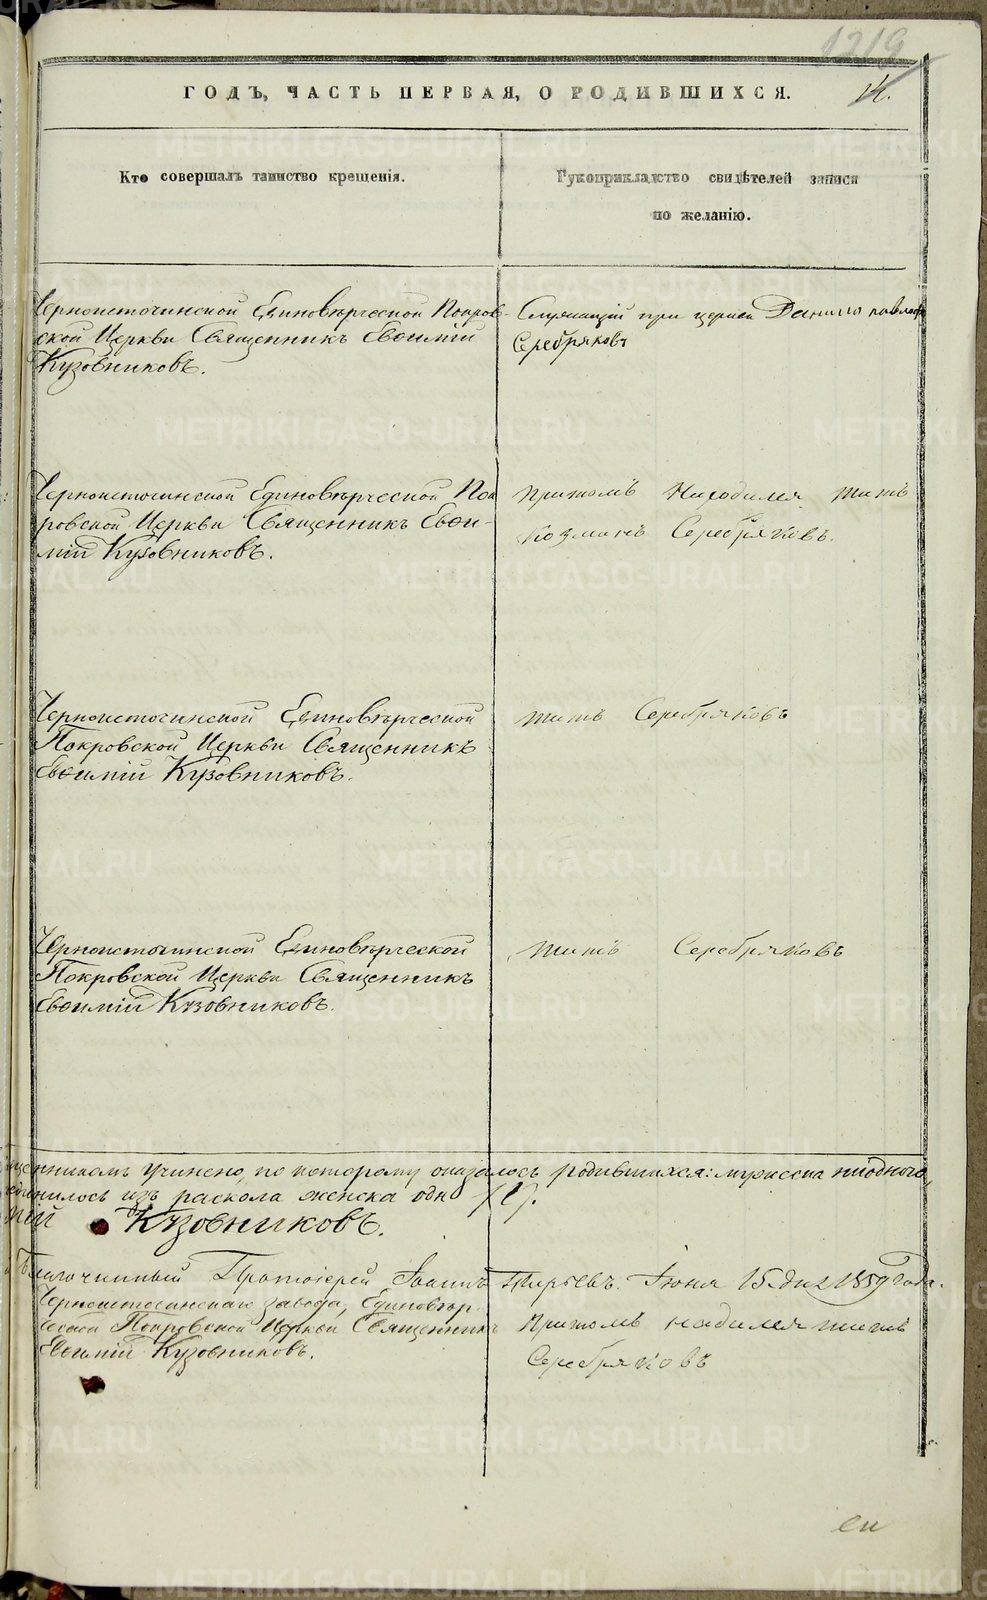 1219
14.
ГОДЪ, ЧАСТЬ ПЕРВАЯ, О РОДИВШИХСЯ.
Кто совершалъ таинство крещенія.
Рукоприкладство свидѣтелей записи
по желанію.
Черноисточинской Единовѣрческой Покров-
ской Церкви Священникъ Евѳимій
Кузовниковъ.
Служащій при церкви Данило павловъ
Серебряковъ
Черноисточинской Единовѣрческой Пок
ровской Церкви Священникъ Евѳи-
мій Кузовниковъ.
притомъ Находился титъ
Козминъ Серебряковъ.
Черноисточинской Единовѣрческой
Покровской Церкви Священникъ
Евѳимій Кузовниковъ.
титъ Серебряковъ
Черноисточинской Единовѣрческой
Покровской Церкви Священникъ
Евѳимій Кузовниковъ.
титъ Серебряковъ
учинено, по которому оказалось родившихся: мужеска ниодного,
изъ раскола женска одн
Кузовниковъ.
Благочинный Протоіерей Іоаннъ Пырьевъ. Іюня 15 дня 1859 Года.
Черноисточинскаго завода, Единовѣр
ческой Покровской Церкви Священникъ
Евѳимій Кузовниковъ.
притомъ находился титъ
Серебряковъ
METRIKI.GASO-URAL.RU